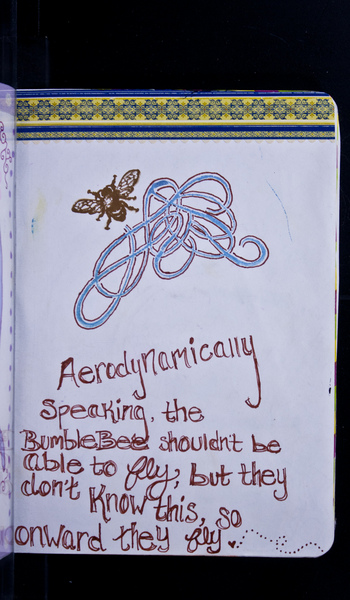 Aerodynamically
Speaking, the
BumbleBee shouldnt be
able to fly, but they
don't Know this, so
onward they fly